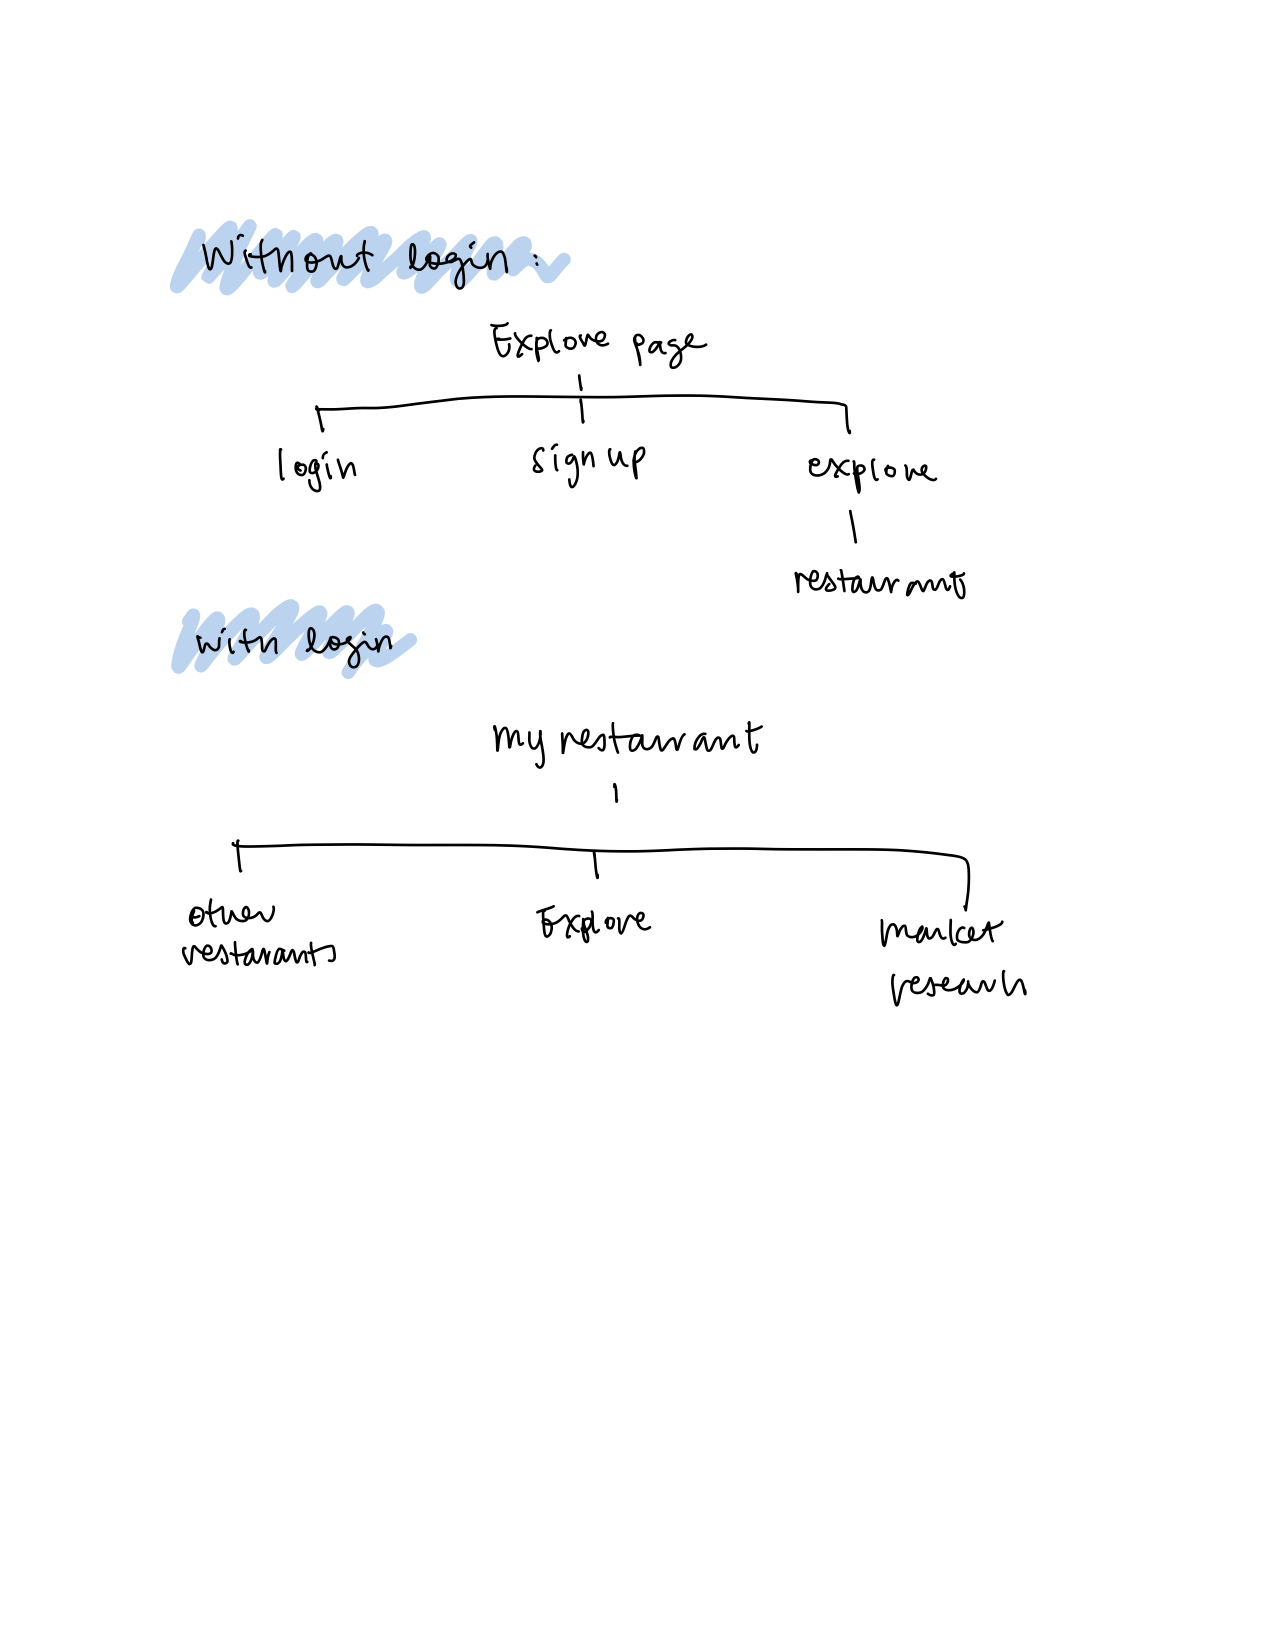 Without login :
Explore page
login sign up explore
restaurant
with login
my restaurant
other Explore market
restarants research